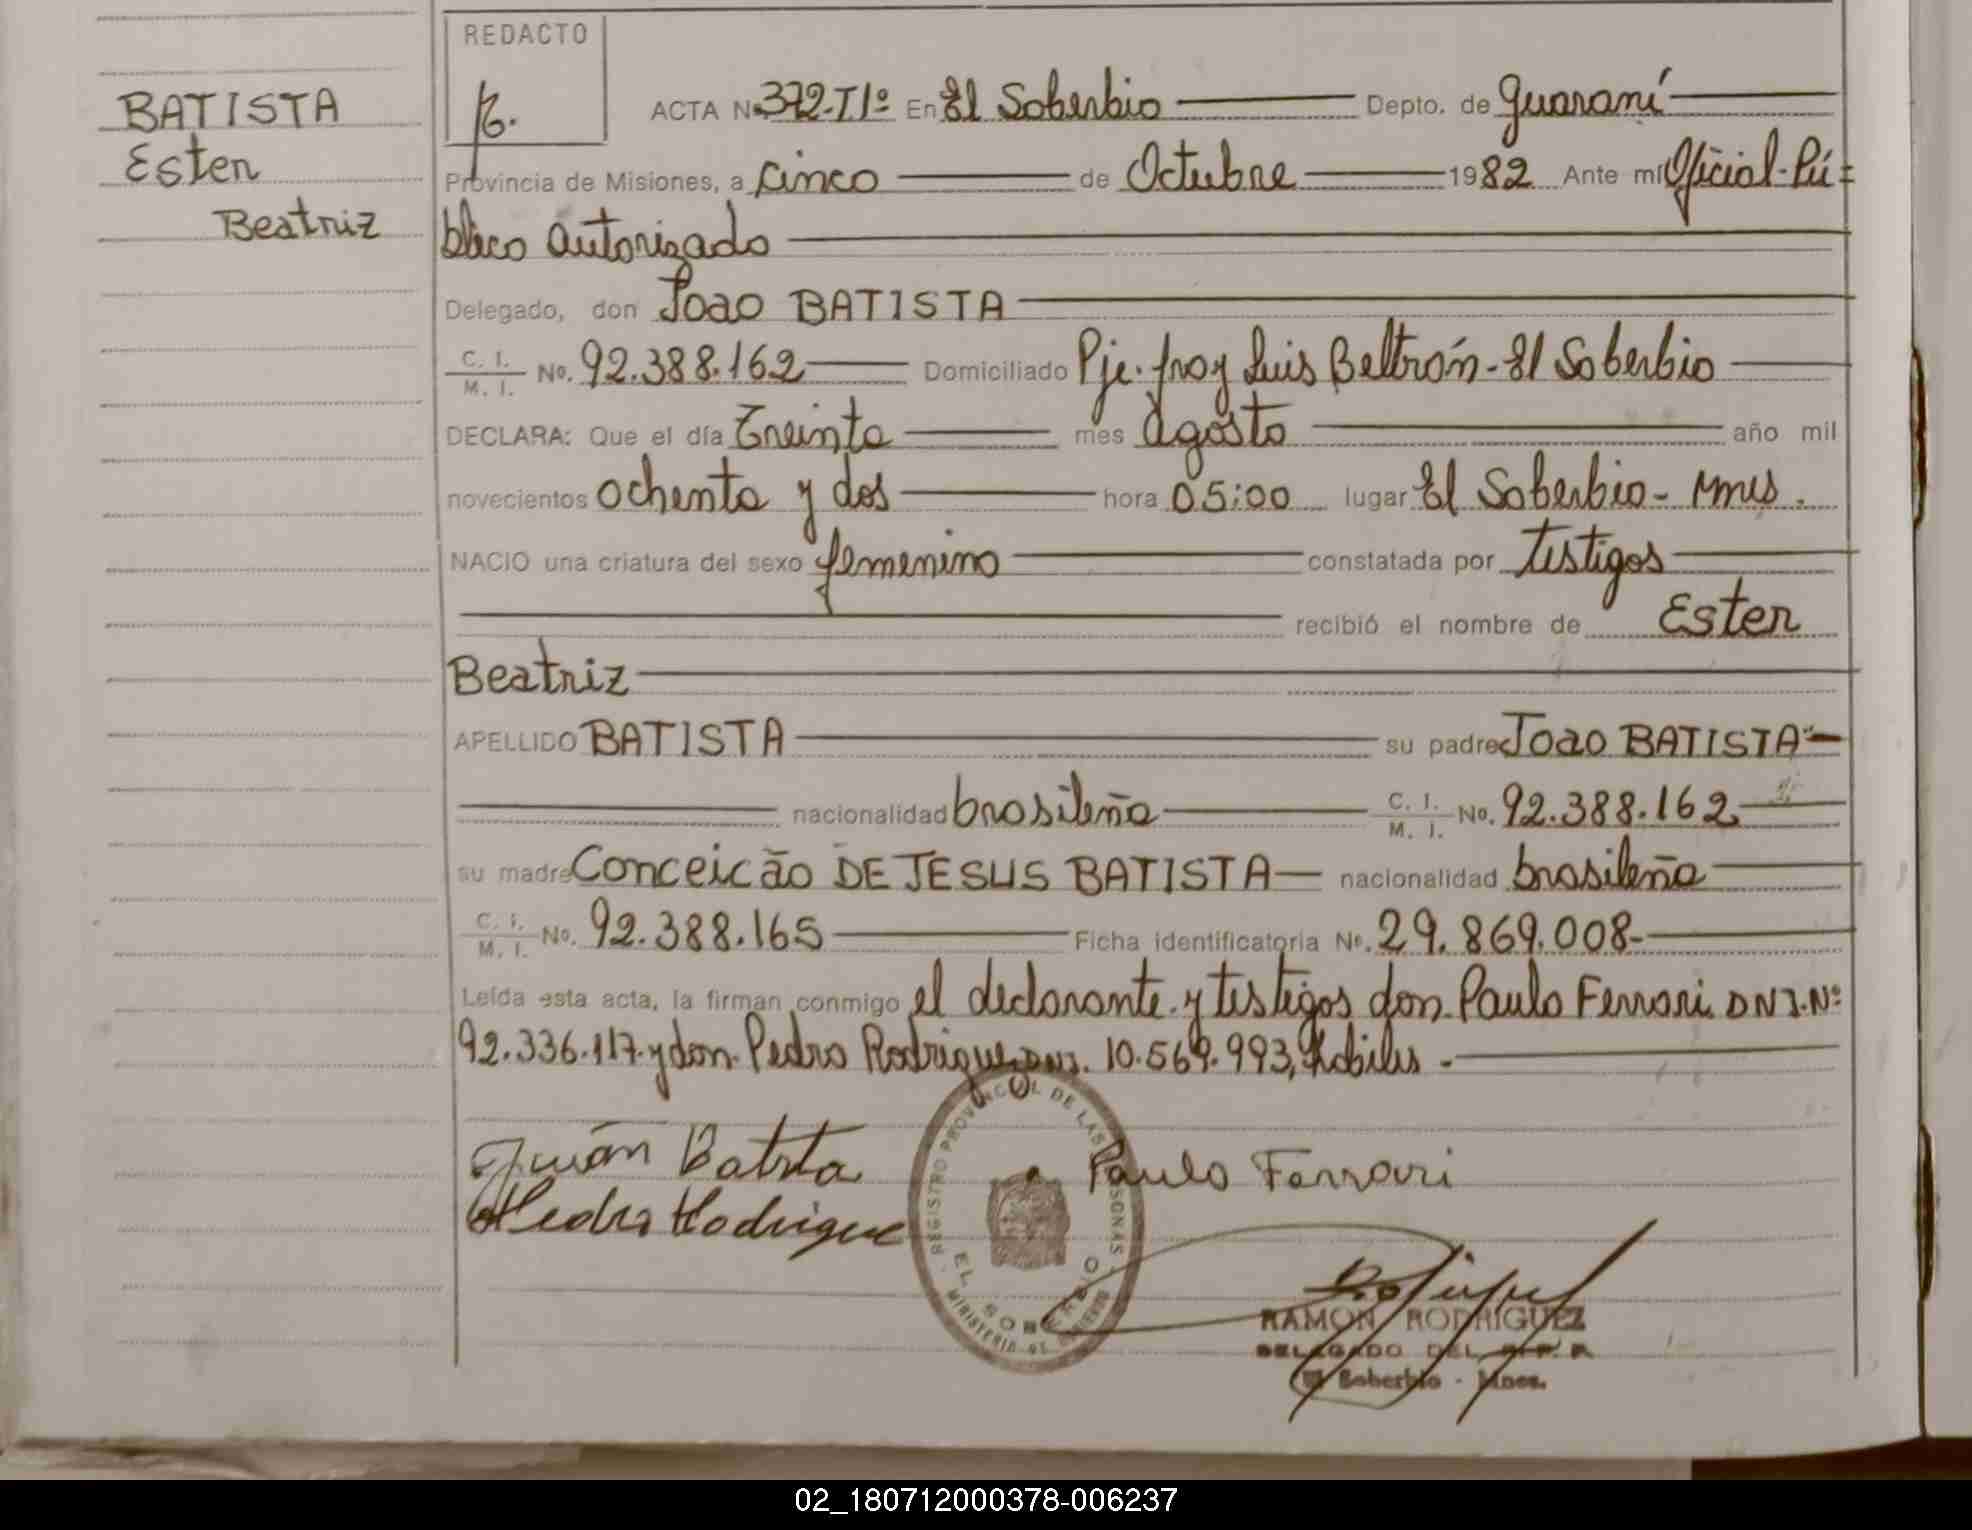 REDACTO
BATISTA
Ester
Beatriz
ACTA Nº 372-Tº1º En El Soberbio Depto. de Guaraní
Provincia de Misiones, a cinco de Octubre 1982 Ante mí Oficial-Pú-
blico Autorizado
Delegado, don Joao BATISTA
C. I. / M. I. No. 92.388.162 Domiciliado Pje. fray Luis Beltrán-El Soberbio
DECLARA: Que el día Treinta mes Agosto año mil
novecientos ochenta y dos hora 05:00 lugar El Soberbio- Mnes.
NACIO una criatura del sexo femenino constatada por testigos
recibió el nombre de Ester
Beatriz
APELLIDO BATISTA su padre Joao BATISTA-
nacionalidad brasileña C. I. / M. I. No. 92.388.162
su madre Conceicão DE JESUS BATISTA nacionalidad brasileña
C. I. / M. I. No. 92.388.165 Ficha identificatoria Nº. 29.869.008-
Leída esta acta, la firman conmigo el declarante y testigos don Paulo Ferrari DNI.Nº
92.336.117 y don Pedro Rodrigue DNI. 10.569.993, hábiles-
Juán Batista Paulo Ferrari
Pedro Rodrigue
REGISTRO PROVINCIAL DE LAS PERSONAS
EL SOBERBIO
MINISTERIO DE GOBIERNO
RAMON RODRIGUEZ
DELEGADO DEL R.P.P.
El Soberbio - Mnes.
02_180712000378-006237